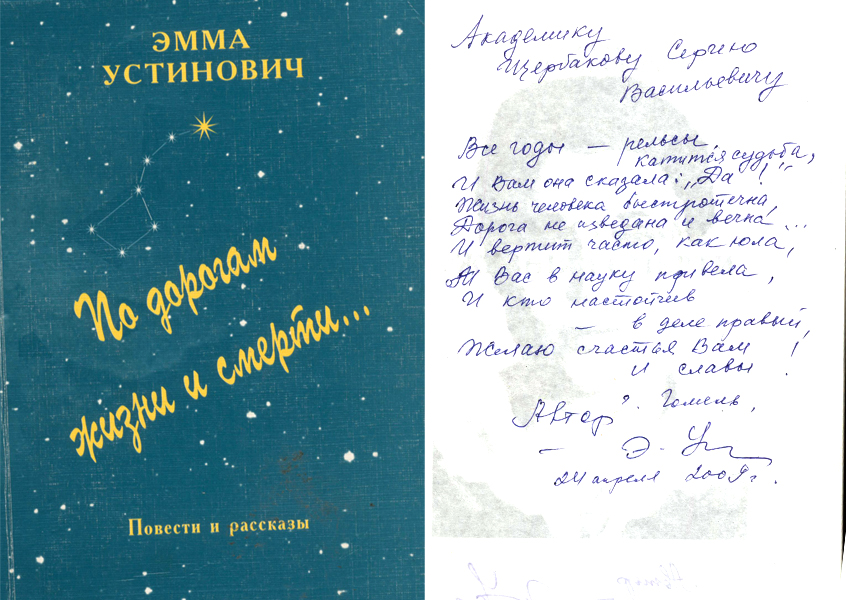 ЭММА
УСТИНОВИЧ
По дорогам
жизни и смерти...
Повести и рассказы
Академику
Щербакову Сергею
Васильевичу
Все годы — рельсы,
катится судьба,
И Вам она сказала: „Да!"
Жизнь человека быстротечна,
Дорога не изведана и вечна...
И вертит часто, как юла,
И Вас в науку привела,
И кто настойчив
— в деле правый,
Желаю счастья Вам
и славы!
Автор
г. Гомель,
— Э. Ус
24 апреля 2009 г.
Автор